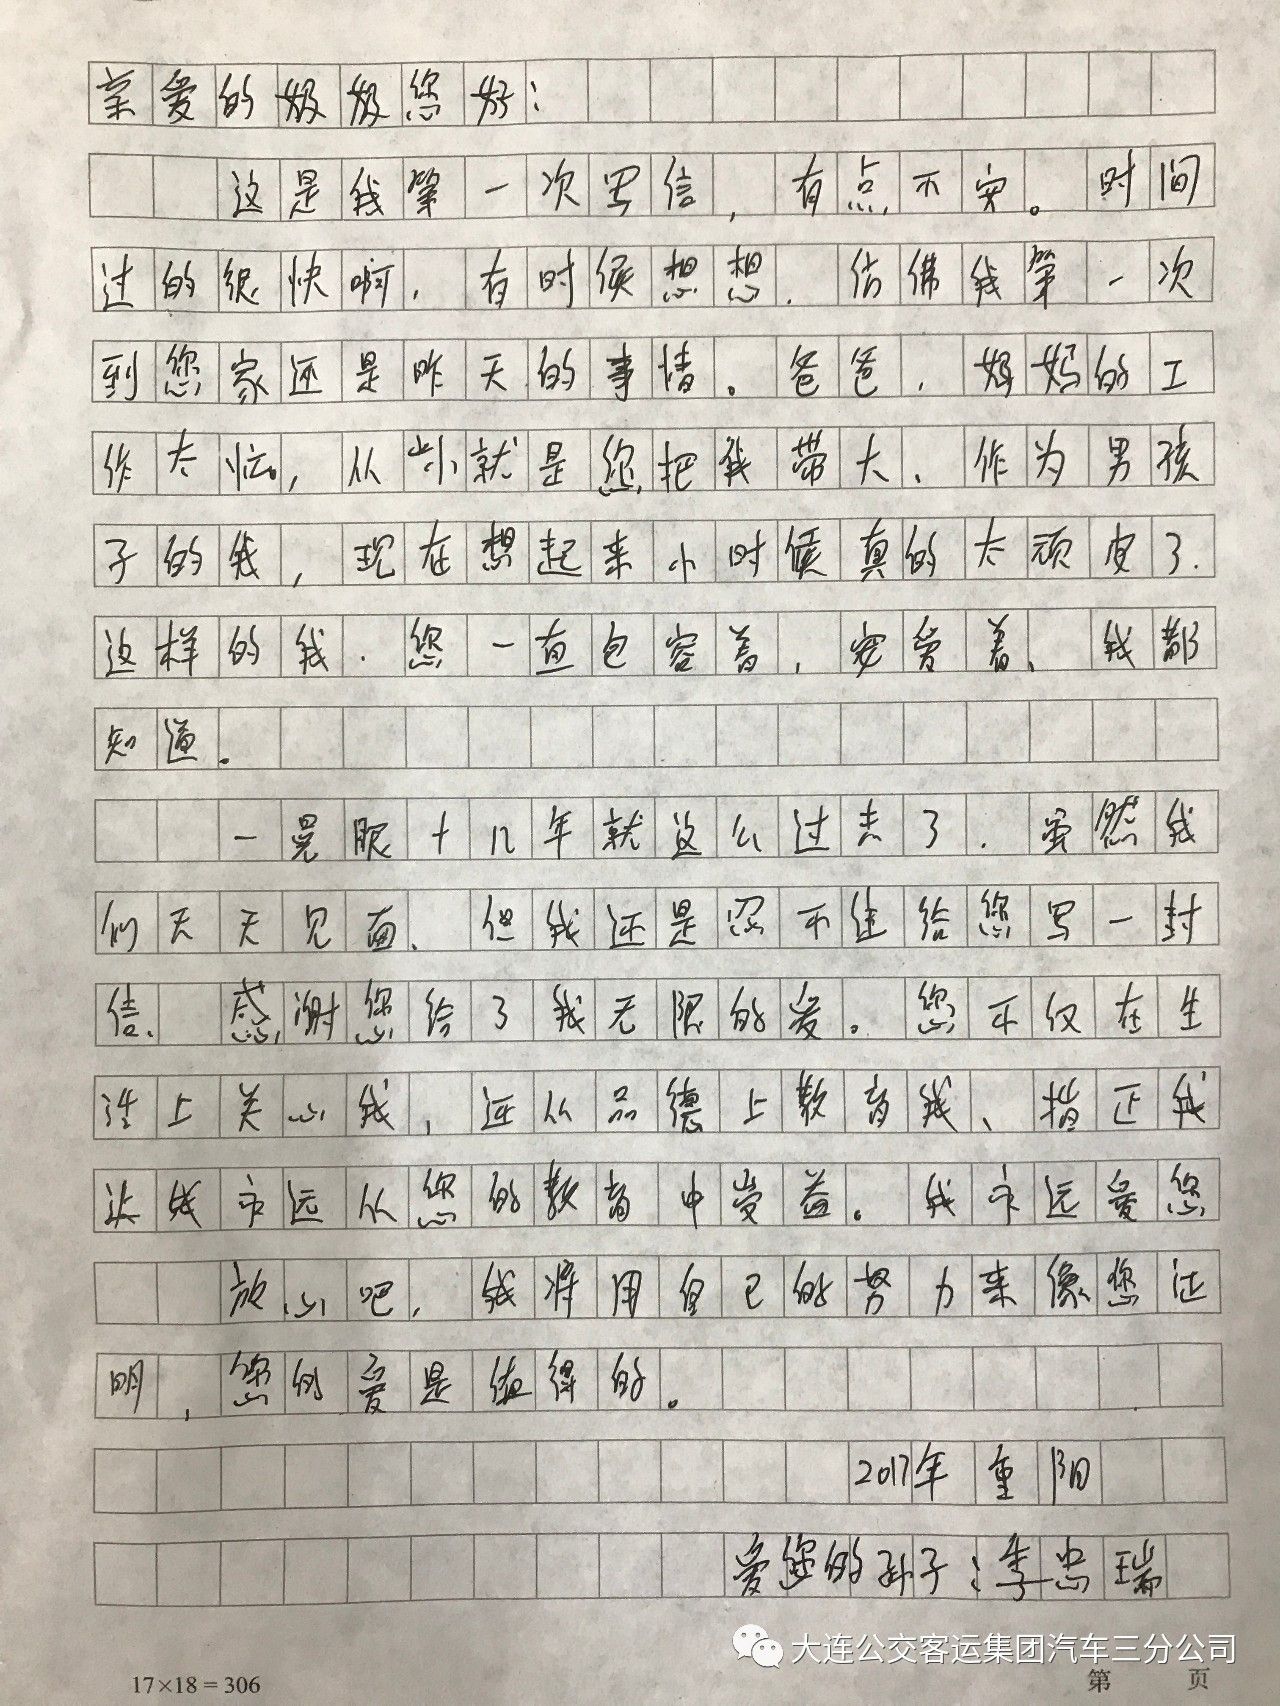 亲爱的奶奶您好：
这是我第一次写信，有点不安。时间
过的很快啊，有时候想想，仿佛我第一次
到您家还是昨天的事情。爸爸，妈妈的工
作太忙，从小就是您把我带大、作为男孩
子的我，现在想起来小时候真的太顽皮了.
这样的我.您一直包容着，宠爱着、我都
知道。
一晃眼十几年就这么过去了.虽然我
们天天见面、但我还是忍不住给您写一封
信、感谢您给了我无限的爱。您不仅在生
活上关心我，还从品德上教育我、指正我
让我永远从您的教育中受益。我永远爱您
放心吧，我将用自己的努力来像您证
明，您的爱是值得的。
2017年重阳
爱您的孙子：李忠瑞
大连公交客运集团汽车三分公司
17×18=306 第 页